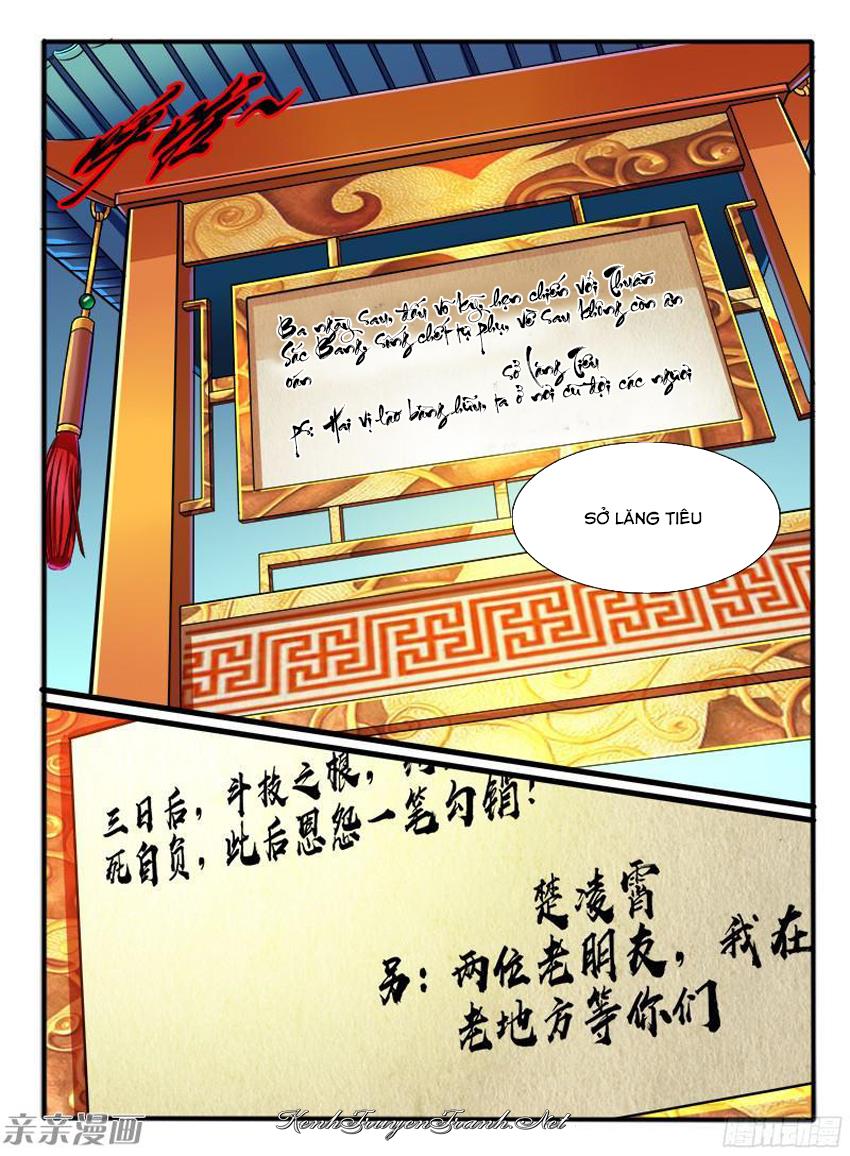 哗啦~
Ba ngày sau, đấu võ kỳ, hẹn chiến với Thuần
Sắc Bang, sống chết tự phụ, về sau không còn ân
oán
Sở Lăng Tiêu
ps: Hai vị lão bằng hữu, ta ở nơi cũ đợi các ngươi
SỞ LĂNG TIÊU
三日后，斗技之根，
死自负，此后恩怨一笔勾销！
楚凌霄
另：两位老朋友，我在
老地方等你们
亲亲漫画
KenhTruyenTranh.Net
腾讯动漫